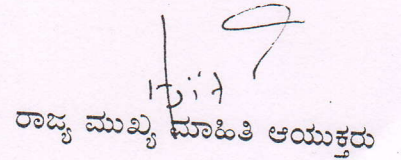 ರಾಜ್ಯ ಮುಖ್ಯ ಮಾಹಿತಿ ಆಯುಕ್ತರು